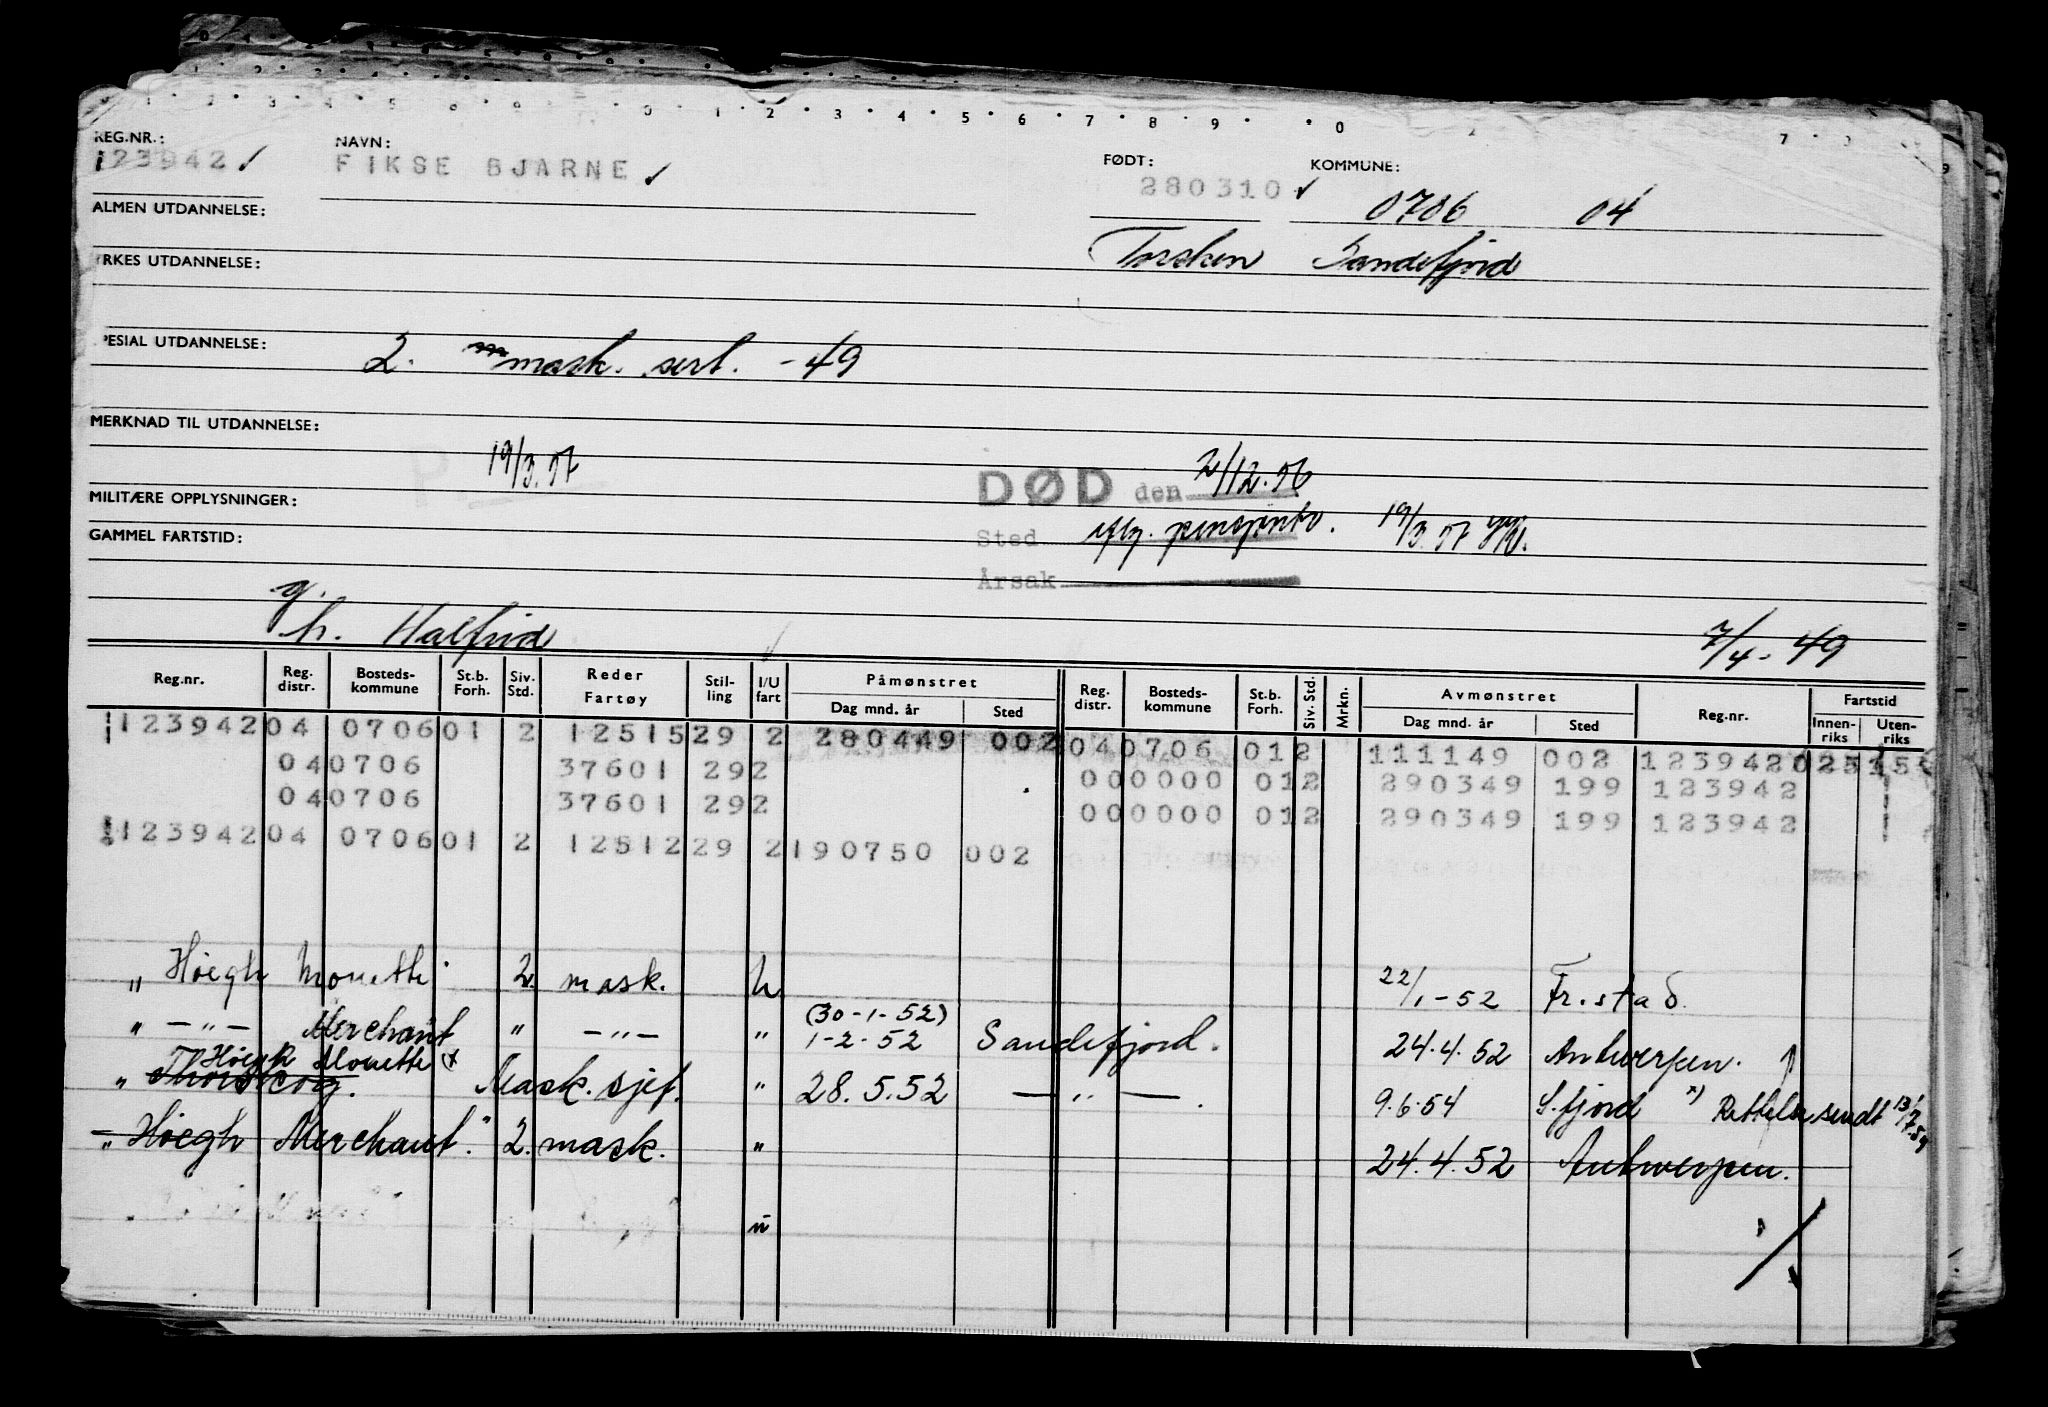 REG.NR.: NAVN: FØDT: KOMMUNE:
123942 ✓ FIKSE BJARNE ✓ 280310 ✓ 0706 04
ALMEN UTDANNELSE: Torsken Sandefjord
YRKES UTDANNELSE:
SPESIAL UTDANNELSE: 2. mask. sert. -49
MERKNAD TIL UTDANNELSE:
19/3.57 DØD den 2/12.56
MILITÆRE OPPLYSNINGER:
Sted iflg. pensjontr. 19/3.57
GAMMEL FARTSTID:
Årsak
g.
h. Halfrid 7/4-49
Reg.nr. Reg. distr. Bosteds-kommune St.b. Forh. Siv. Std. Reder Fartøy Stil-ling I/U fart Påmønstret Dag mnd. år Sted Reg. distr. Bosteds-kommune St.b. Forh. Siv. Std. Mrkn. Avmønstret Dag mnd. år Sted Reg.nr. Fartstid Innen-riks Uten-riks
123942 04 0706 01 2 12515 29 2 280449 002 04 0706 01 2 111149 002 123942
04 0706 37601 29 2 00 0000 01 2 290349 199 123942
04 0706 37601 29 2 00 0000 01 2 290349 199 123942
123942 04 0706 01 2 12512 29 2 190750 002
" Høegh Mouette 2. mask. u 22/1-52 Fr.stad.
(30-1-52)
" -"- Merchant " -"- " 1-2-52 Sandefjord. 24.4.52 Antwerpen.
Høegh Mouette x)
" Thorskog. Mask.sjef. " 28.5.52 -"-. 9.6.54 S.fjord x) Rettelse sendt 13/7.54
" Høegh Merchant. 2. mask. " 24.4.52 Antwerpen.
u